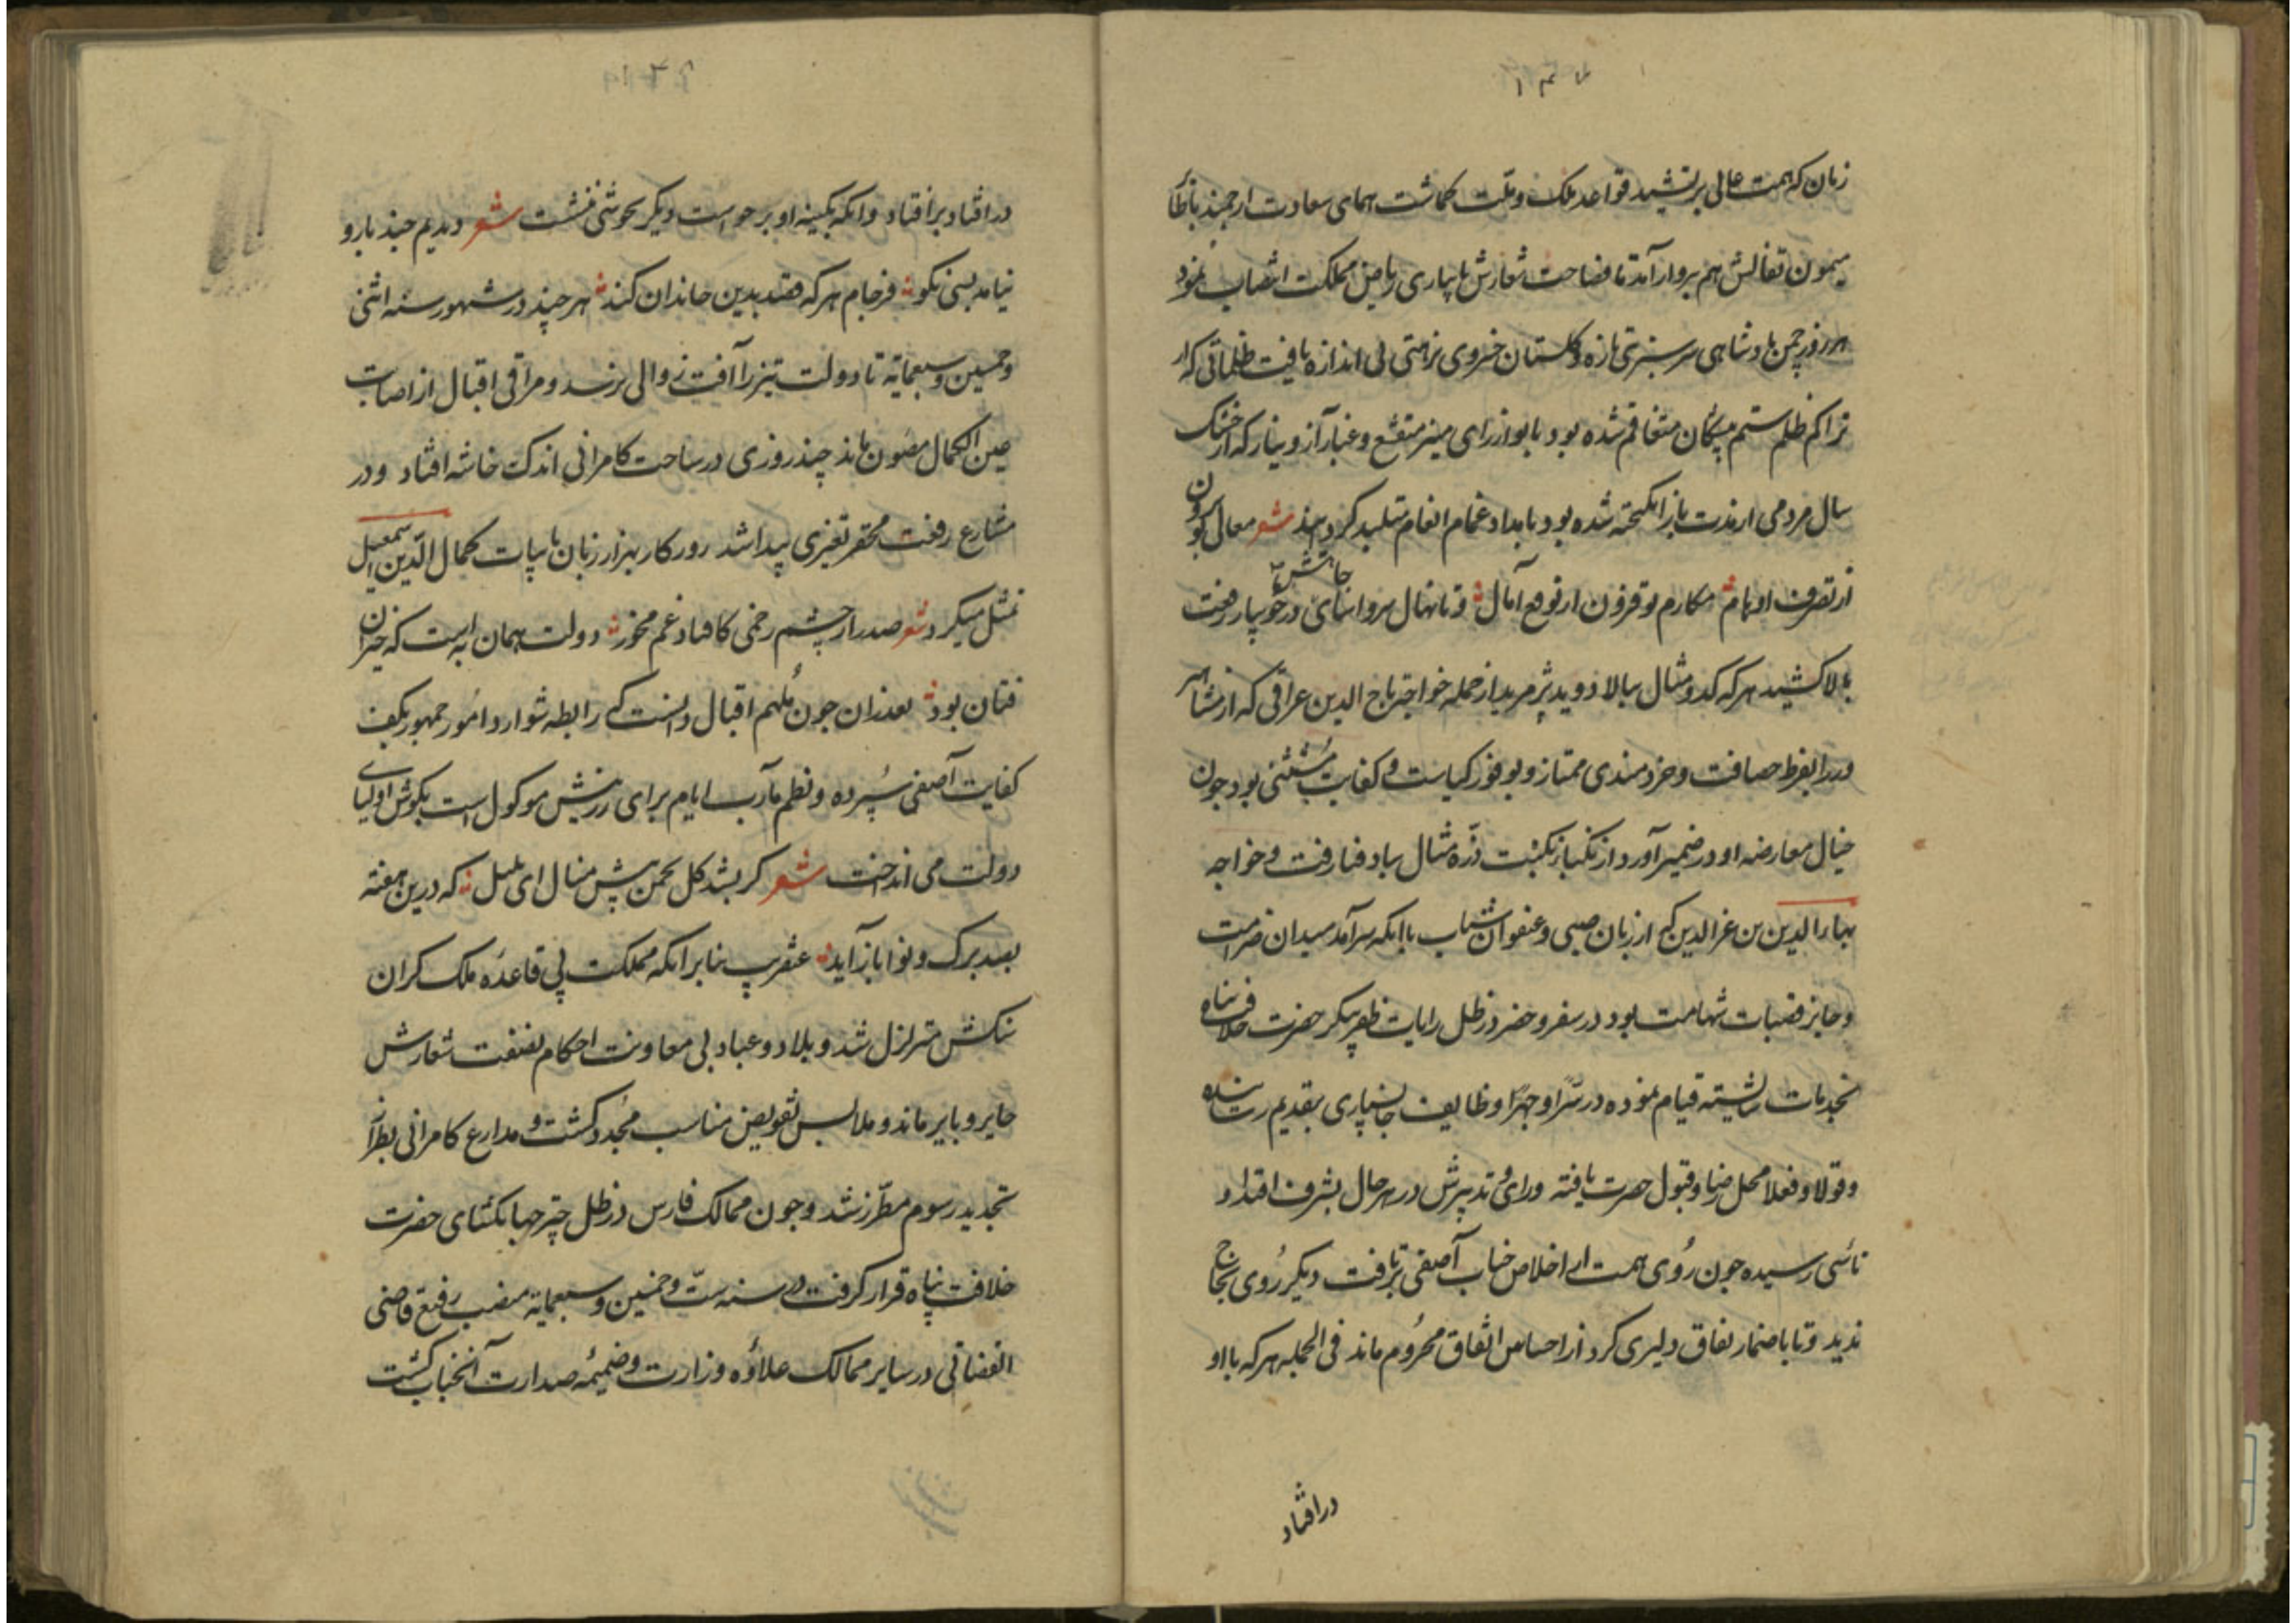 زمان که همت عالی بر تشیید قواعد ملک و ملت کماشت همای سعادت ارجمند با نظا
میمون تفالش هم پرواز آمد تا فصاحت شعارش بابیاری ریاض مملکت انتصاب نمود
هر روز چمن پادشاهی سرسبزی تازه و کلستان خسروی نزاهتی بی اندازه یافت ظلماتی که از
تراکم ظلم ستم پیشکان متفاقم شده بود بانوار رای منیر منقشع و غبار آز و نیاز که از خشک
سال مردمی از مدت باز انکیخته شده بود بامداد غمام انعام متلبد کردانید شعر معالی کو برون
از تصرف اوهام مکارم تو فزون از توقع آمال و تا نهال سرو آسای جاهش در جویبار رفعت
بالا کشید هر که کدو مثال ببالا دوید پژمرید از جمله خواجه تاج الدین عراقی که از مشاهیر
وزرا بفرط حصافت و خردمندی ممتاز و بوفور کیاست و کفایت مستثنی بود جون
خیال معارضه او در ضمیر آورد از نکباء نکبت ذره مثال بباد فنا رفت و خواجه
بهاء الدین بن عز الدین که از زمان صبی و عنفوان شباب با انکه سرآمد میدان صرامت
و حایز قصبات شهامت بود در سفر و حضر در ظل رایات ظفر پیکر حضرت خلافت پناه
بخدمات شایسته قیام نموده در سرّا و جهرًا وظایف جانسپاری بتقدیم رسانیده
و قولا و فعلا محل رضا و قبول حضرت یافته و رای و تدبیرش در هر حال بشرف اقتدا و
تاسّی رسیده جون روی همت از اخلاص جناب آصفی برتافت دیکر روی نجاح
ندید و تا باضمار نفاق دلیری کرد از احساس اتفاق محروم ماند فی الجمله هر که با او
در افتاد
در افتاد برافتاد و انکه بکینه او برخواست دیکر بخوشی ننشست شعر دیدیم چند بار و
نیامد بسی نکو فرجام هر که قصد بدین خاندان کند هر چند در شهور سنه اثنی
و خمسین و سبعمایة تا دولت تیز را آفت زوالی نرسد و مراقی اقبال از اصابت
عین الکمال مصون ماند چند روزی در ساحت کامرانی اندک خاشه افتاد و در
مشارع رفعت محقر تغیری پیدا شد روزکار بهزار زبان بابیات کمال الدین اسمعیل
تمثل میکرد شعر صدرا ز چشم زخمی کافتاد غم مخور دولت همان به است که خیزان
فتان بود بعد ازان جون ملهم اقبال دانست که رابطه شوارد امور جمهور بکف
کفایت آصفی سپرده و نظم مآرب ایام برای رزینش موکول است بکوش اولیای
دولت می انداخت شعر کر بشد کل بچمن پیش منال ای بلبل که درین هفته
بصد برک و نوا باز آید عنقریب بنابر انکه مملکت بی قاعده ملک کران
سنکش متزلزل شد و بلاد و عباد بی معاونت احکام نصفت شعارش
حایر و بایر ماند و ملابس تفویض مناسب مجدد کشت و مدارع کامرانی بطراز
تجدید رسوم مطرز شد و جون ممالک فارس در ظل چتر جهانکشای حضرت
خلافت پناه قرار کرفت در سنه ستّ و خمسین و سبعمایة منصب رفیع قاضی
القضاتی در سایر ممالک علاوه وزارت و ضمیمه صدارت آنجناب کشت